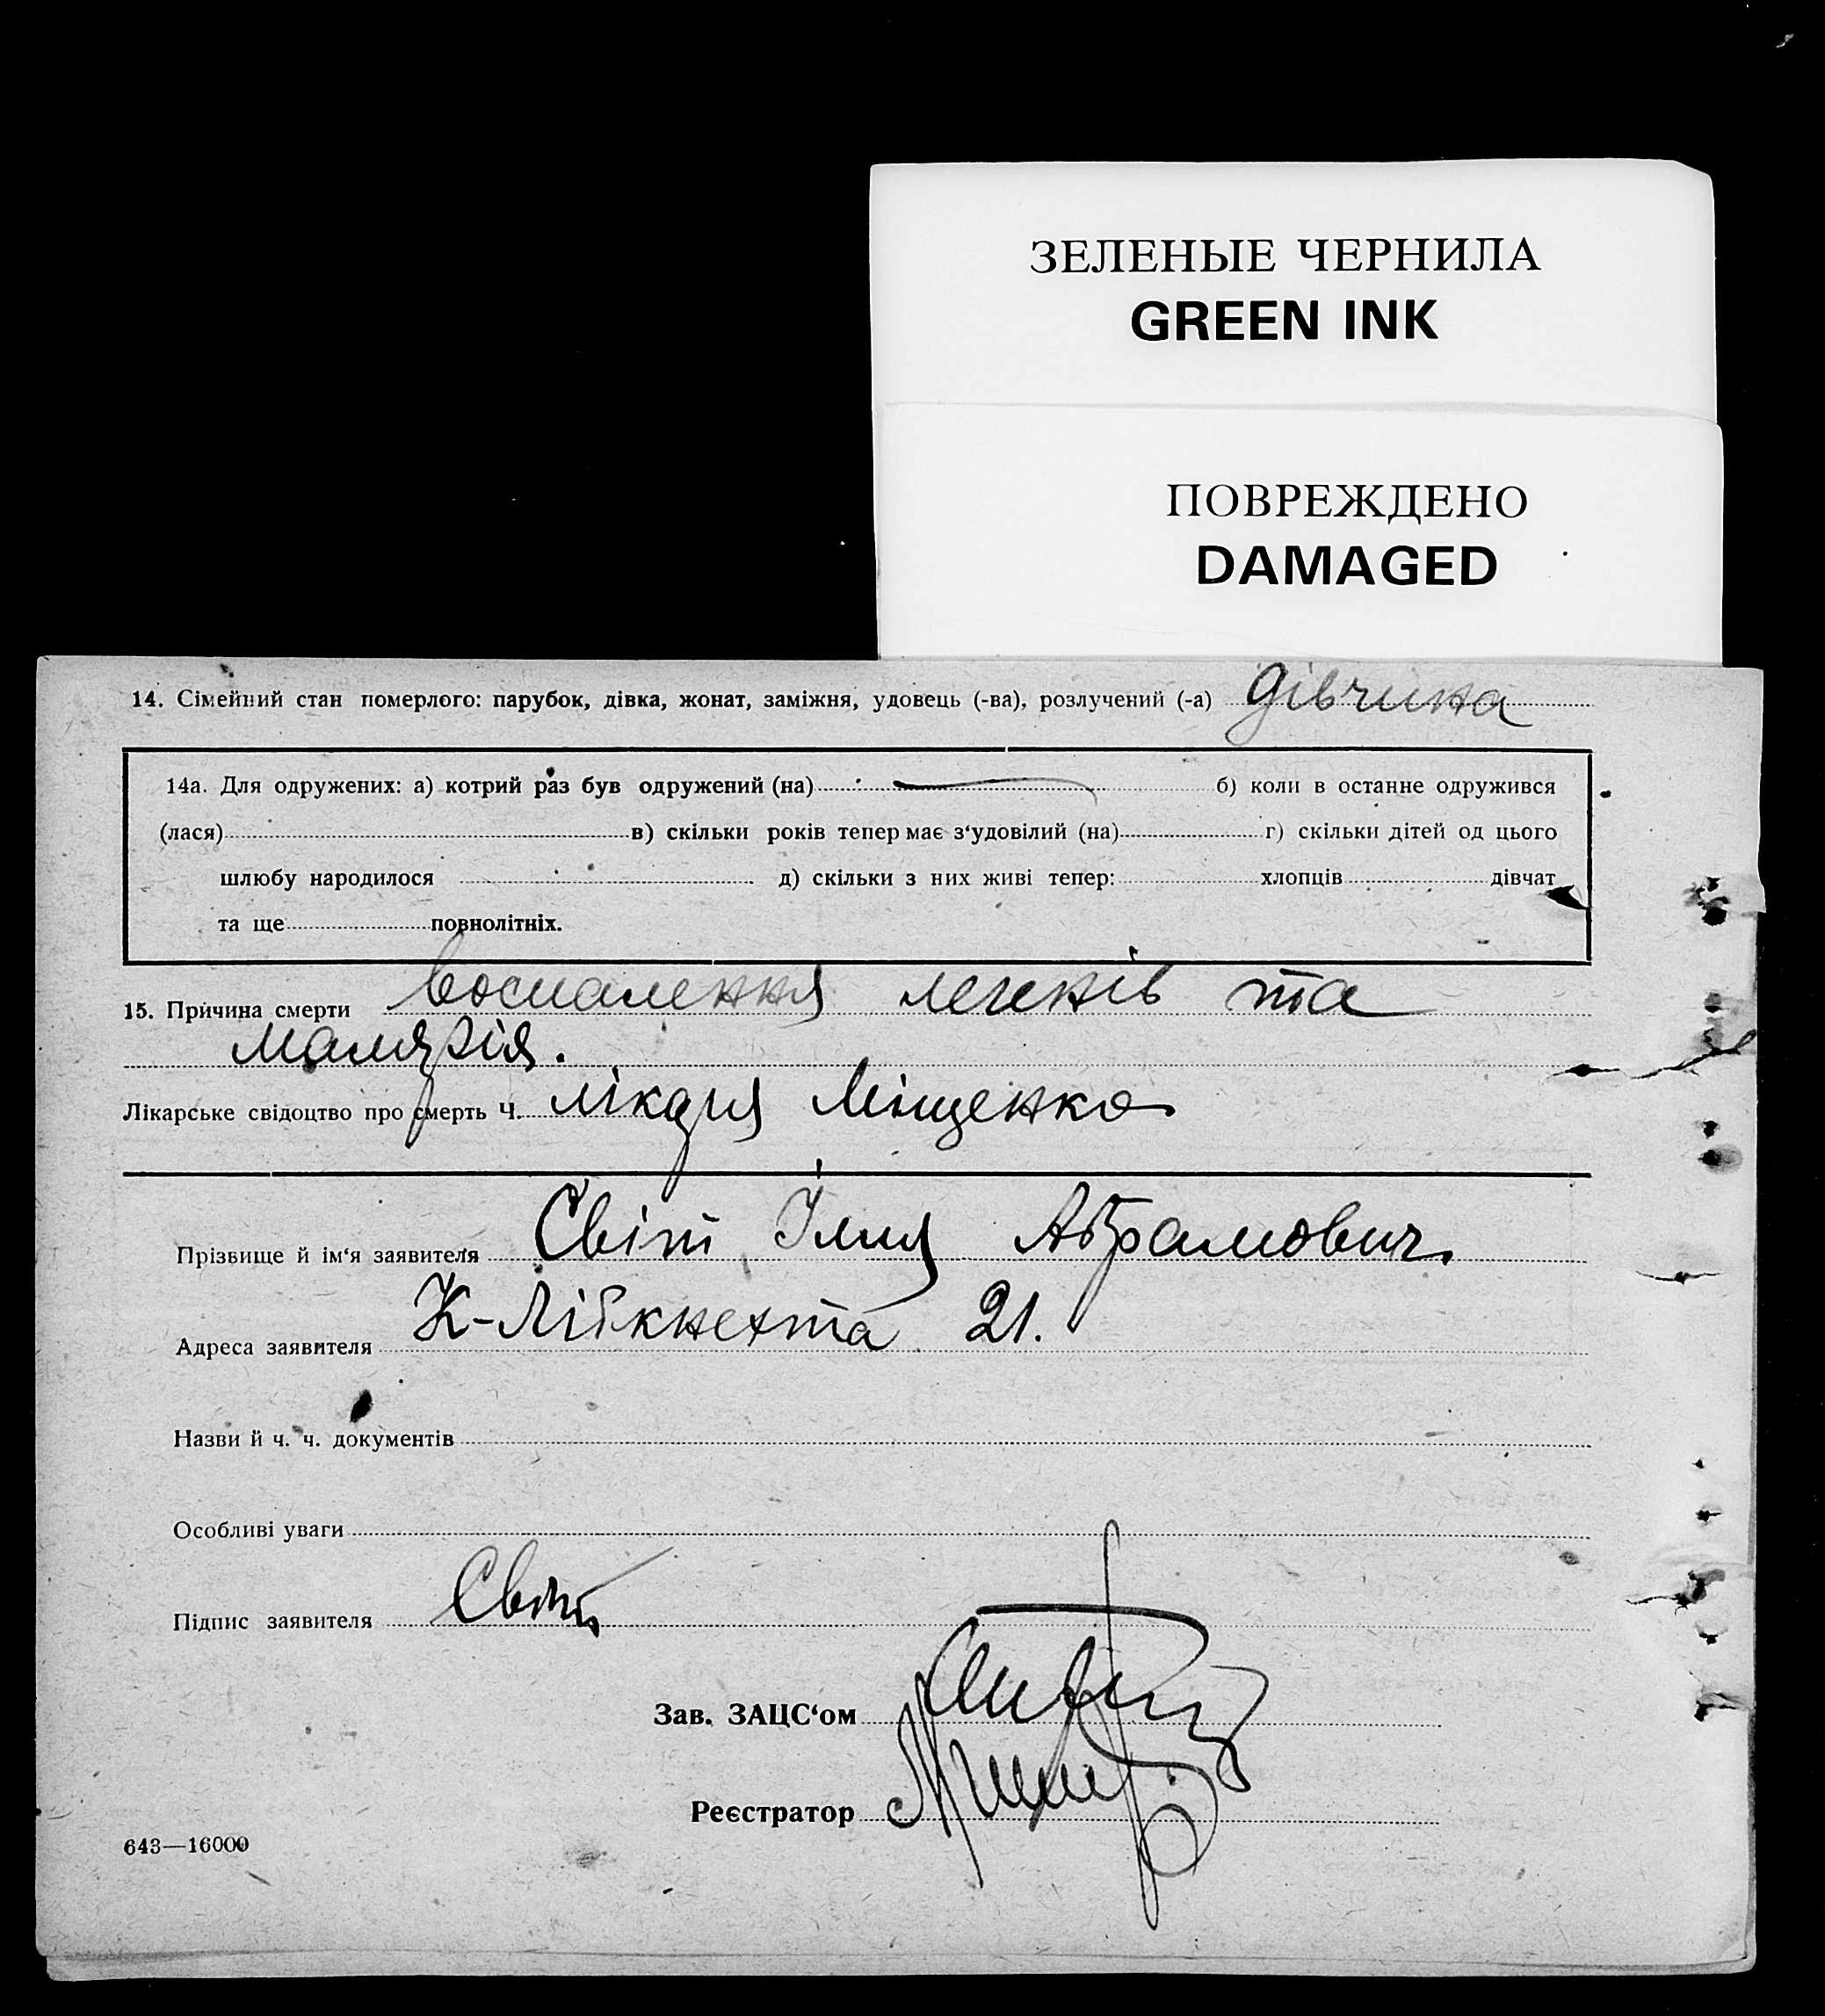 ЗЕЛЕНЫЕ ЧЕРНИЛА
GREEN INK
ПОВРЕЖДЕНО
DAMAGED
14. Сімейний стан померлого: парубок, дівка, жонат, заміжня, удовець (-ва), розлучений (-а) дівчина
14а. Для одружених: а) котрий раз був одружений (на) б) коли в останне одружився
(лася) в) скільки років тепер має з‘удовілий (на) г) скільки дітей од цього
шлюбу народилося д) скільки з них живі тепер: хлопців дівчат
та ще повнолітніх.
15. Причина смерти воспалення легенів та
малярія.
Лікарське свідоцтво про смерть Ч. лікаря Міщенко
Прізвище й ім‘я заявителя Світ Ілля Абрамович.
Адреса заявителя К-Лібкнехта 21.
Назви й ч. ч. документів
Особливі уваги
Підпис заявителя Світ
Зав. ЗАЦС‘ом
Реєстратор
643—16000